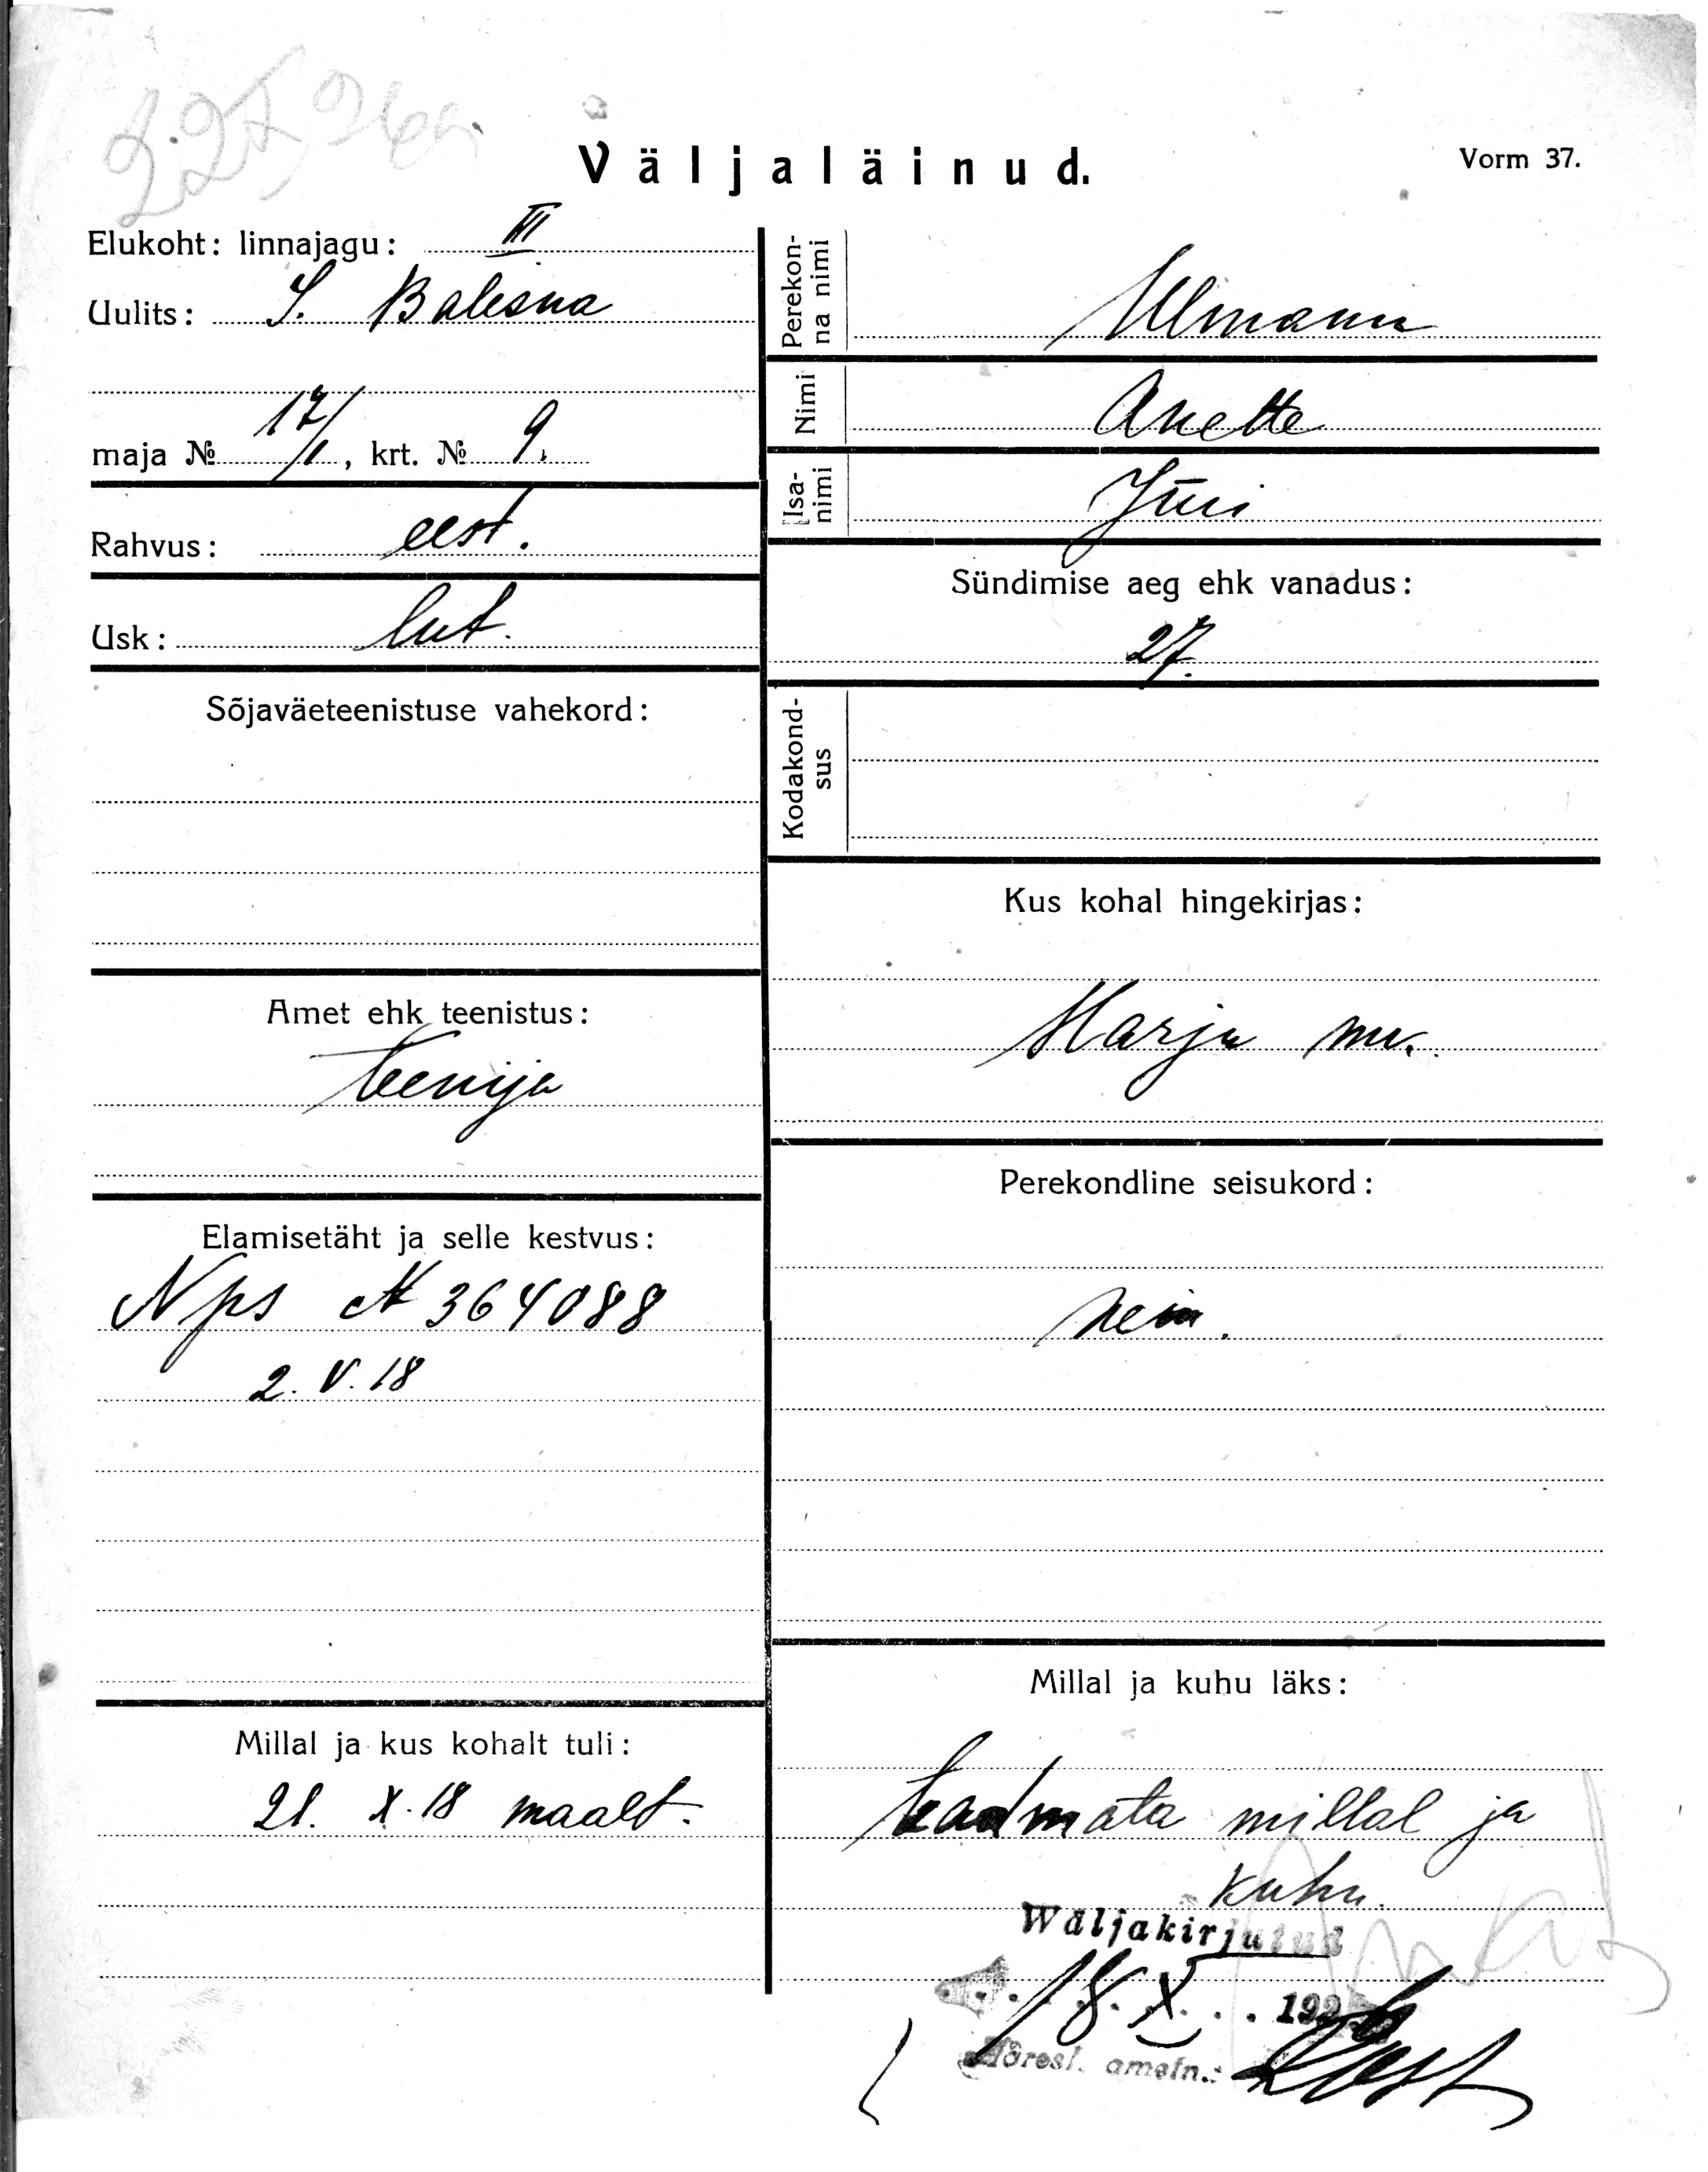 Väljaläinud.
Vorm 37.
Elukoht: linnajagu: III
Uulits: S. Balesna
maja № 17/1, krt. № 9.
Rahvus: eest.
Usk: lut.
Sõjaväeteenistuse vahekord:
Amet ehk teenistus:
teenija
Elamisetäht ja selle kestvus:
Nps № 364088
2. V. 18
Millal ja kus kohalt tuli:
21. X. 18 maalt.
Perekonna nimi
Ulmann
Nimi
Anette
Isanimi
Jüri
Sündimise aeg ehk vanadus:
27.
Kodakondsus
Kus kohal hingekirjas:
Harju mk.
Perekondline seisukord:
nein.
Millal ja kuhu läks:
teadmata millal ja
kuhu.
Wäljakirjutud
18. X. 192
Adresl. ametn.: